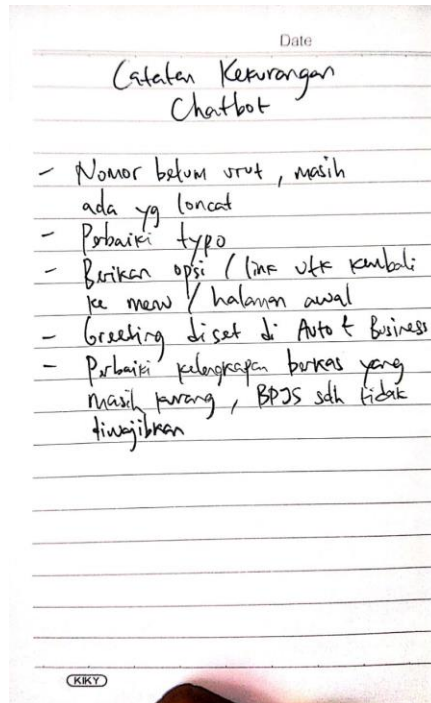 Date
Catatan Kekurangan
Chatbot
- Nomor belum urut, masih
ada yg loncat
- Perbaiki typo
- Berikan opsi / link utk kembali
ke menu / halaman awal
- Greeting diset di Auto & Business
- Perbaiki kelengkapan berkas yang
masih kurang, BPJS sdh tidak
diwajibkan
KIKY